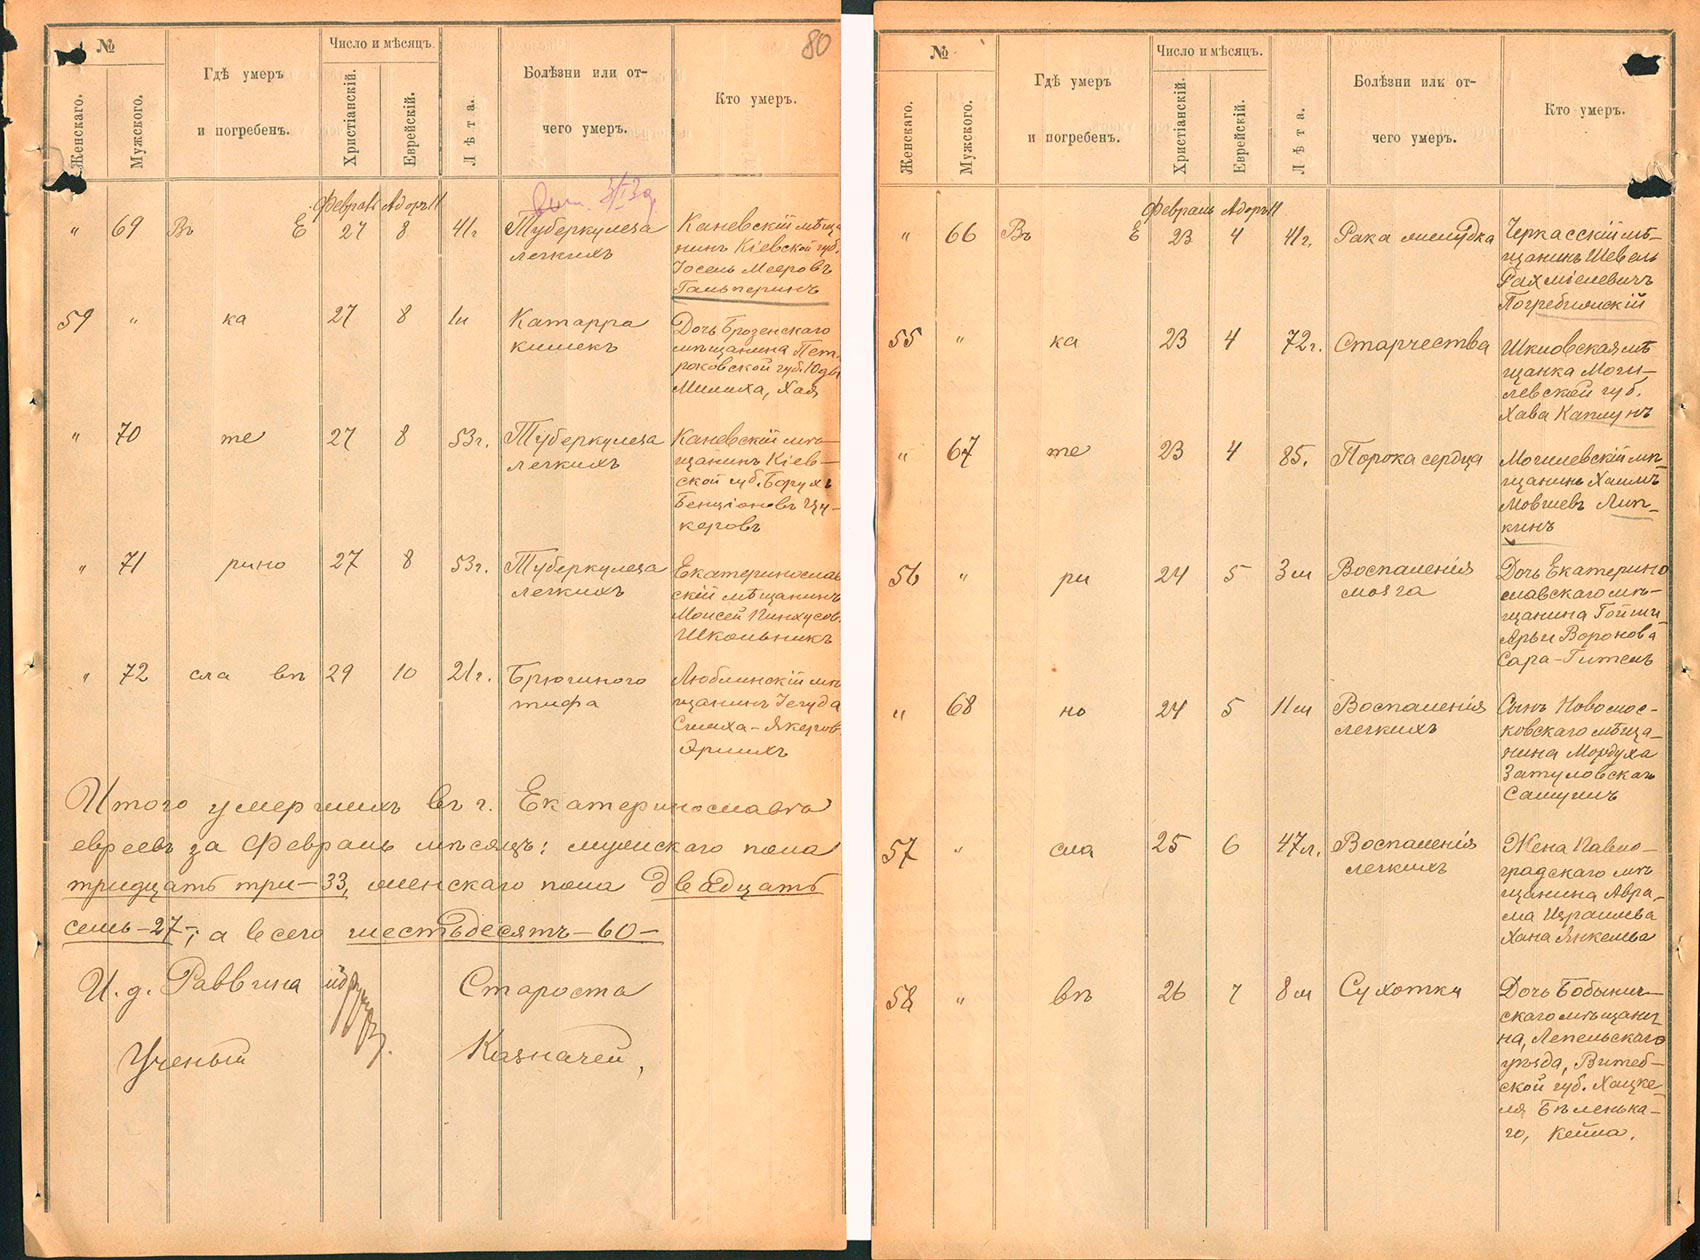 80
№
Женскаго.
Мужского.
Гдѣ умеръ
и погребенъ.
Число и мѣсяцъ.
Христіанскій.
Еврейскій.
Лѣта.
Болѣзни или от-
чего умеръ.
Кто умеръ.
Февраль Адоръ II
" 69 Въ Е 27 8 41г.
Туберкулеза
легкихъ
Каневскій мѣща
нинъ Кіевской губ.
Іосель Мееровъ
Гальперинъ
59 " ка 27 8 1м
Катарра
кишекъ
Дочь Брозенскаго
мѣщанина Пет-
роковской губ. Юды
Милиха, Хая
" 70 те 27 8 53г.
Туберкулеза
легкихъ
Каневскій мѣ-
щанинъ Кіев-
ской губ. Борухъ
Бенціоновъ Цу-
керовъ
" 71 рино 27 8 53г.
Туберкулеза
легкихъ
Екатеринослав
скій мѣщанинъ
Моисей Пинхусов.
Школьникъ
" 72 сла вѣ 29 10 21г.
Брюшного
тифа
Люблинскій мѣ
щанинъ Іегуда
Симха-Якеров.
Эрлихъ
Итого умершихъ въ г. Екатеринославѣ
евреевъ за Февраль мѣсяцъ: мужскаго пола
тридцать три-33, женскаго пола двадцать
семь-27-; а всего шестьдесятъ-60-
И. д. Раввина
Староста
Ученый
Казначей,
№
Женскаго.
Мужского.
Гдѣ умеръ
и погребенъ.
Число и мѣсяцъ.
Христіанскій.
Еврейскій.
Лѣта.
Болѣзни илк от-
чего умеръ.
Кто умеръ.
Февраль Адоръ II
" 66 Въ Е 23 4 41г.
Рака желудка
Черкасскій мѣ-
щанинъ Шевель
Рахміелевичъ
Погребижскій
55 " ка 23 4 72г.
Старчества
Шкловская мѣ
щанка Моги-
левской губ.
Хава Каплунъ
" 67 те 23 4 85.
Порока сердца
Могилевскій мѣ-
щанинъ Хаимъ
Мовшев Лип-
кинъ
56 " ри 24 5 3м
Воспаленія
мозга
Дочь Екатерино
славскаго мѣ-
щанина
Арьи Воронова
Сара-Гитель
" 68 но 24 5 11м
Воспаленія
легкихъ
Сынъ Новомос-
ковскаго мѣща-
нина Мордуха
Затуловскаго
Самуилъ
57 " сла 25 6 47л.
Воспаленія
легкихъ
Жена Павло-
градскаго мѣ
щанина Авра-
ма Израилева
Хана Янкелева
58 " вѣ 26 7 8м
Сухотки
Дочь Бобынич-
скаго мѣщани
на, Лепельскаго
уѣзда, Витеб-
ской губ. Хацке-
ля Бѣленька-
го, Кейла.